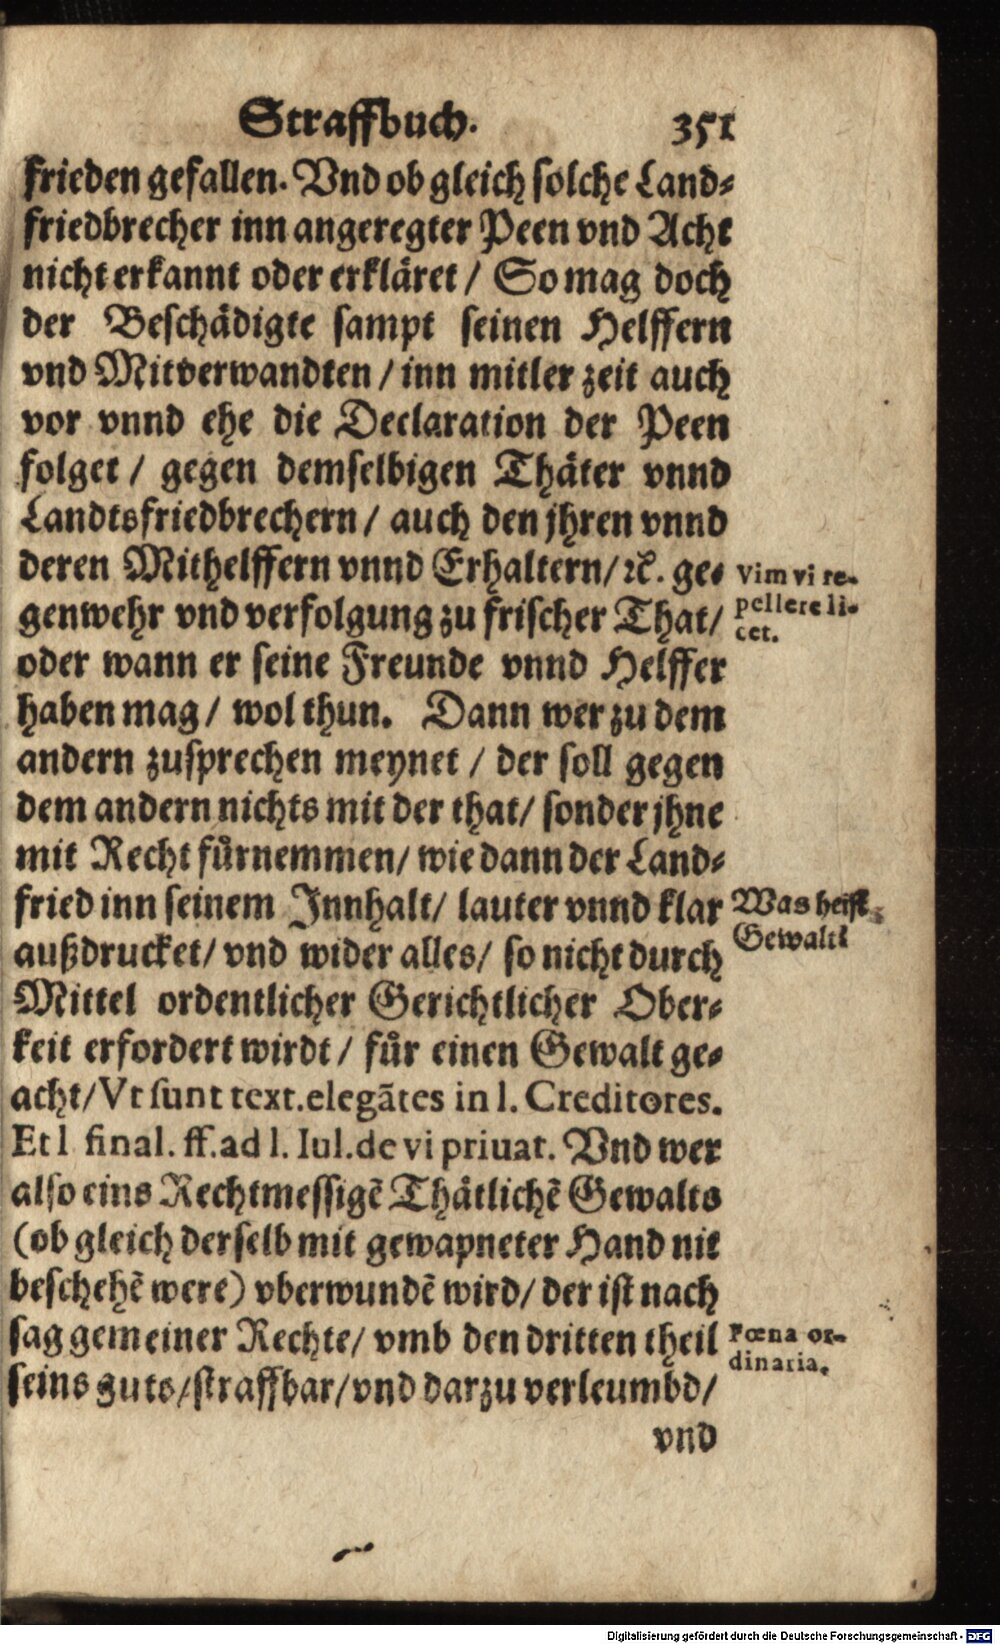 Straffbuch. 351
frieden gefallen. Vnd ob gleich solche Land⸗
friedbrecher inn angeregter Peen vnd Acht
nicht erkannt oder erkläret / So mag doch
der Beschädigte sampt seinen Helffern
vnd Mitverwandten / inn mitler zeit auch
vor vnnd ehe die Declaration der Peen
folget / gegen demselbigen Thäter vnnd
Landtsfriedbrechern / auch den jhren vnnd
deren Mithelffern vnnd Erhaltern / ꝛc. ge⸗
genwehr vnd verfolgung zu frischer That /
oder wann er seine Freunde vnnd Helffer
haben mag / wol thun. Dann wer zu dem
andern zusprechen meynet / der soll gegen
dem andern nichts mit der that / sonder jhne
mit Recht fuͤrnemmen / wie dann der Land⸗
fried inn seinem Innhalt / lauter vnnd klar
außdrucket / vnd wider alles / so nicht durch
Mittel ordentlicher Gerichtlicher Ober⸗
keit erfordert wirdt / fuͤr einen Gewalt ge⸗
acht / Vt sunt text. elegãtes in l. Creditores.
Et l final. ff. ad l. Iul. de vi priuat. Vnd wer
also eins Rechtmessigẽ Thätlichẽ Gewalts
(ob gleich derselb mit gewapneter Hand nit
beschehẽ were) vberwundẽ wird / der ist nach
sag gemeiner Rechte / vmb den dritten theil
seins guts / straffbar / vnd darzu verleumbd /
vnd
Vim vi re-
pellere li-
cet.
Was heist
Gewalt?
Pœna or-
dinaria.
Digitalisierung gefördert durch die Deutsche Forschungsgemeinschaft - DFG